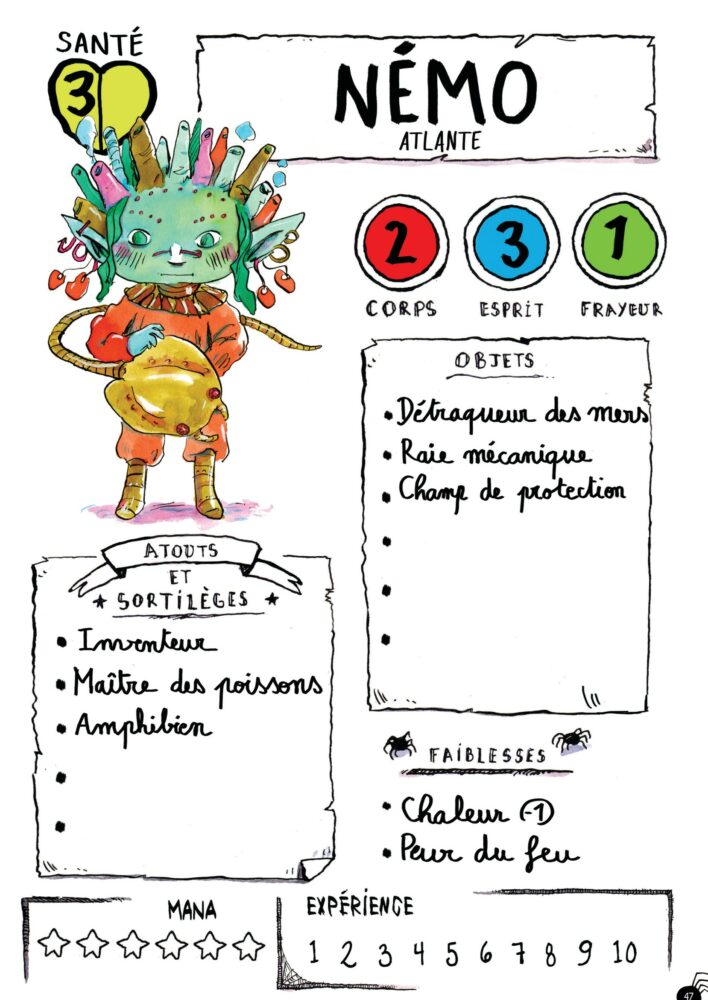 SANTÉ
3
NÉMO
ATLANTE
2
3
1
CORPS
ESPRIT
FRAYEUR
OBJETS
• Détraqueur des mers
• Raie mécanique
• Champ de protection
•
•
•
ATOUTS
ET
★ SORTILÈGES ★
• Inventeur
• Maître des poissons
• Amphibien
•
•
FAIBLESSES
• Chaleur (-1)
• Peur du feu
MANA
EXPÉRIENCE
1 2 3 4 5 6 7 8 9 10
47